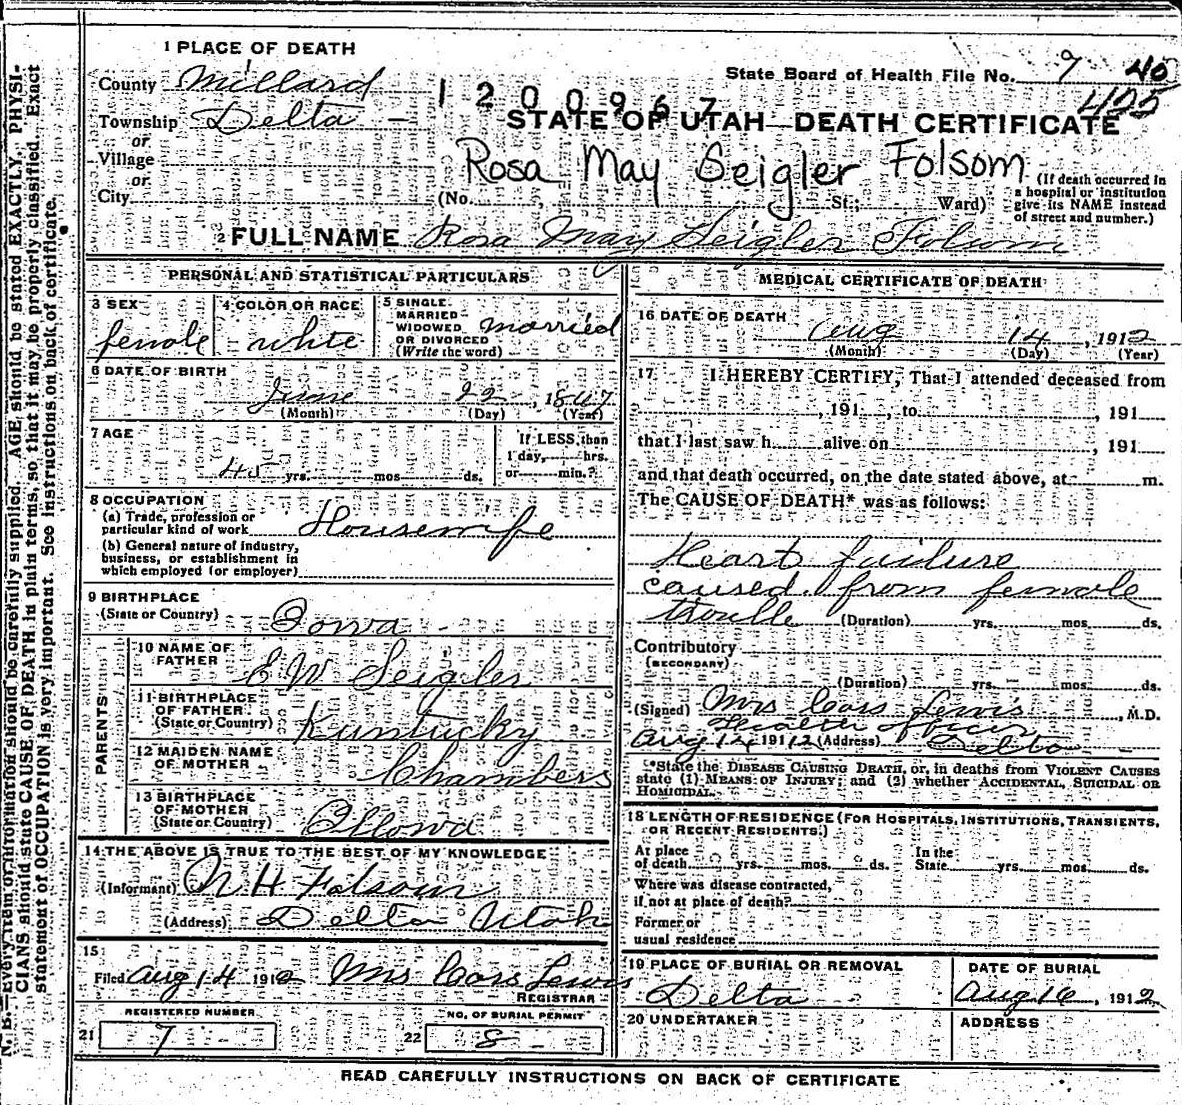 1 PLACE OF DEATH
County Millard
State Board of Health File No. 9 40
425
1200967
Township Delta
STATE OF UTAH—DEATH CERTIFICATE
or
Village
or
City
Rosa May Seigler Folsom
(No. , St.; Ward)
(If death occurred in
a hospital or institution
give its NAME instead
of street and number.)
2 FULL NAME Rosa May Seigler Folsom
PERSONAL AND STATISTICAL PARTICULARS
3 SEX
female
4 COLOR OR RACE
white
5 SINGLE
MARRIED
WIDOWED
OR DIVORCED
(Write the word)
married
6 DATE OF BIRTH
June 22, 1867
(Month) (Day) (Year)
7 AGE
45 yrs. mos. ds.
If LESS than
1 day, hrs.
or min.?
8 OCCUPATION
(a) Trade, profession or
particular kind of work Housewife
(b) General nature of industry,
business, or establishment in
which employed (or employer)
9 BIRTHPLACE
(State or Country) Iowa
PARENTS
10 NAME OF
FATHER E W Seigler
11 BIRTHPLACE
OF FATHER
(State or Country) Kuntucky
12 MAIDEN NAME
OF MOTHER Chambers
13 BIRTHPLACE
OF MOTHER
(State or Country)
14 THE ABOVE IS TRUE TO THE BEST OF MY KNOWLEDGE
(Informant) N H Folsom
(Address) Delta Utah
15
Filed Aug 14 1912 Mrs Cors Lewis
REGISTRAR
REGISTERED NUMBER
21 7
NO. OF BURIAL PERMIT
22 8
MEDICAL CERTIFICATE OF DEATH
16 DATE OF DEATH
Aug 14, 1912
(Month) (Day) (Year)
17 I HEREBY CERTIFY, That I attended deceased from
, 191 , to , 191
that I last saw h alive on , 191
and that death occurred, on the date stated above, at m.
The CAUSE OF DEATH* was as follows:
Heart failure
caused from female
trouble (Duration) yrs. mos. ds.
Contributory
(SECONDARY)
(Duration) yrs. mos. ds.
(Signed) Mrs Cors Lewis, M.D.
Health officer
Aug 14 1912 (Address) Delta
*State the DISEASE CAUSING DEATH, or, in deaths from VIOLENT CAUSES
state (1) MEANS OF INJURY; and (2) whether ACCIDENTAL, SUICIDAL OR
HOMICIDAL.
18 LENGTH OF RESIDENCE (FOR HOSPITALS, INSTITUTIONS, TRANSIENTS,
OR RECENT RESIDENTS.)
At place
of death yrs. mos. ds.
In the
State yrs. mos. ds.
Where was disease contracted,
if not at place of death?
Former or
usual residence
19 PLACE OF BURIAL OR REMOVAL
Delta
DATE OF BURIAL
Aug 16, 1912
20 UNDERTAKER
ADDRESS
READ CAREFULLY INSTRUCTIONS ON BACK OF CERTIFICATE
N. B.—Every item of information should be carefully supplied. AGE should be stated EXACTLY. PHYSI-
CIANS should state CAUSE OF DEATH in plain terms, so that it may be properly classified. Exact
statement of OCCUPATION is very important. See instructions on back of certificate.